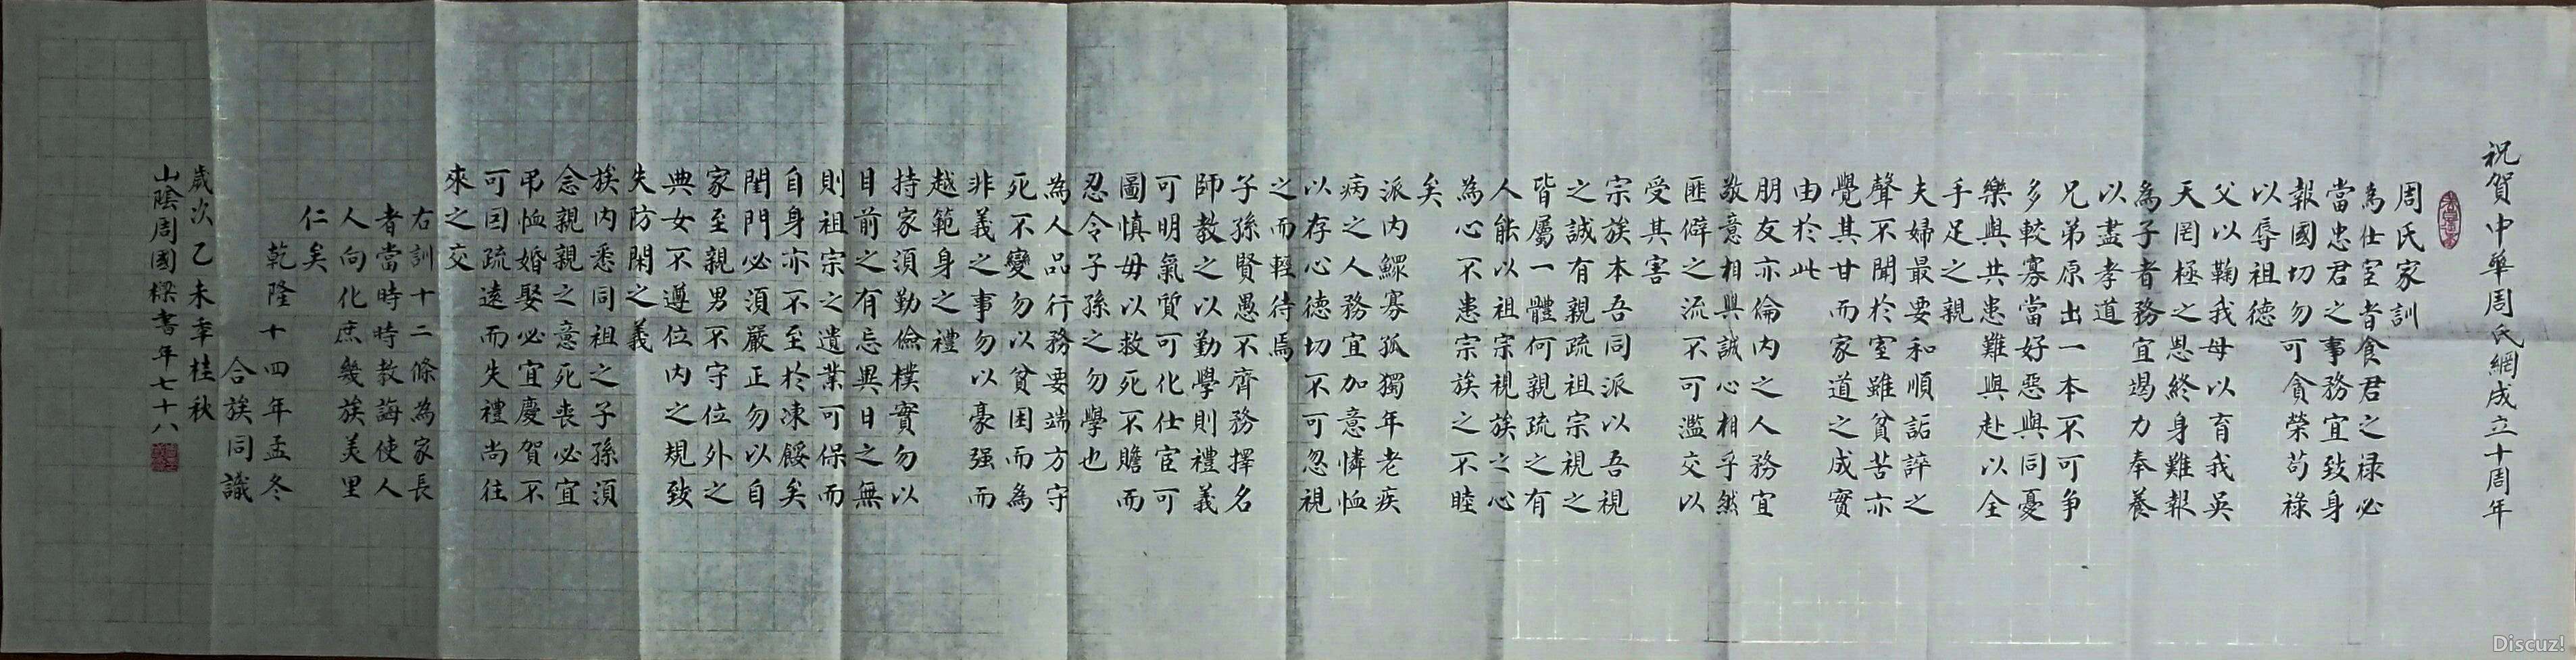 祝賀中華周氏網成立十周年
周氏家訓
為仕宦者食君之禄必
當忠君之事務宜致身
報國切勿可貪榮苟禄
以辱祖德
父以鞠我母以育我吴
天罔極之恩終身難報
為子者務宜竭力奉養
以盡孝道
兄弟原出一本不可争
多較寡當好惡與同憂
樂與共患難與赴以全
手足之親
夫婦最要和順詬誶之
聲不聞於室雖貧苦亦
覺其甘而家道之成實
由於此
朋友亦倫内之人務宜
敬意相與誠心相孚然
匪僻之流不可濫交以
受其害
宗族本吾同派以吾視
之誠有親疏祖宗視之
皆屬一體何親疏之有
人能以祖宗視族之心
為心不患宗族之不睦
矣
派内鰥寡孤獨年老疾
病之人務宜加意憐恤
以存心德切不可忽視
之而輕待焉
子孫賢愚不齊務擇名
師教之以勤學則禮義
可明氣質可化仕宦可
圖慎毋以救死不贍而
忍令子孫之勿學也
為人品行務要端方守
死不變勿以貧困而為
非義之事勿以豪强而
越範身之禮
持家須勤儉樸實勿以
目前之有忘異日之無
則祖宗之遺業可保而
自身亦不至於凍餒矣
閨門必須嚴正勿以自
家至親男不守位外之
典女不遵位内之規致
失防閑之義
族内悉同祖之子孫須
念親親之意死喪必宜
弔恤婚娶必宜慶賀不
可因疏遠而失禮尚往
來之交
右訓十二條為家長
者當時時教誨使人
人向化庶幾族美里
仁矣
乾隆十四年孟冬
合族同識
歲次乙未季桂秋
山陰周國樑書年七十八
Discuz!